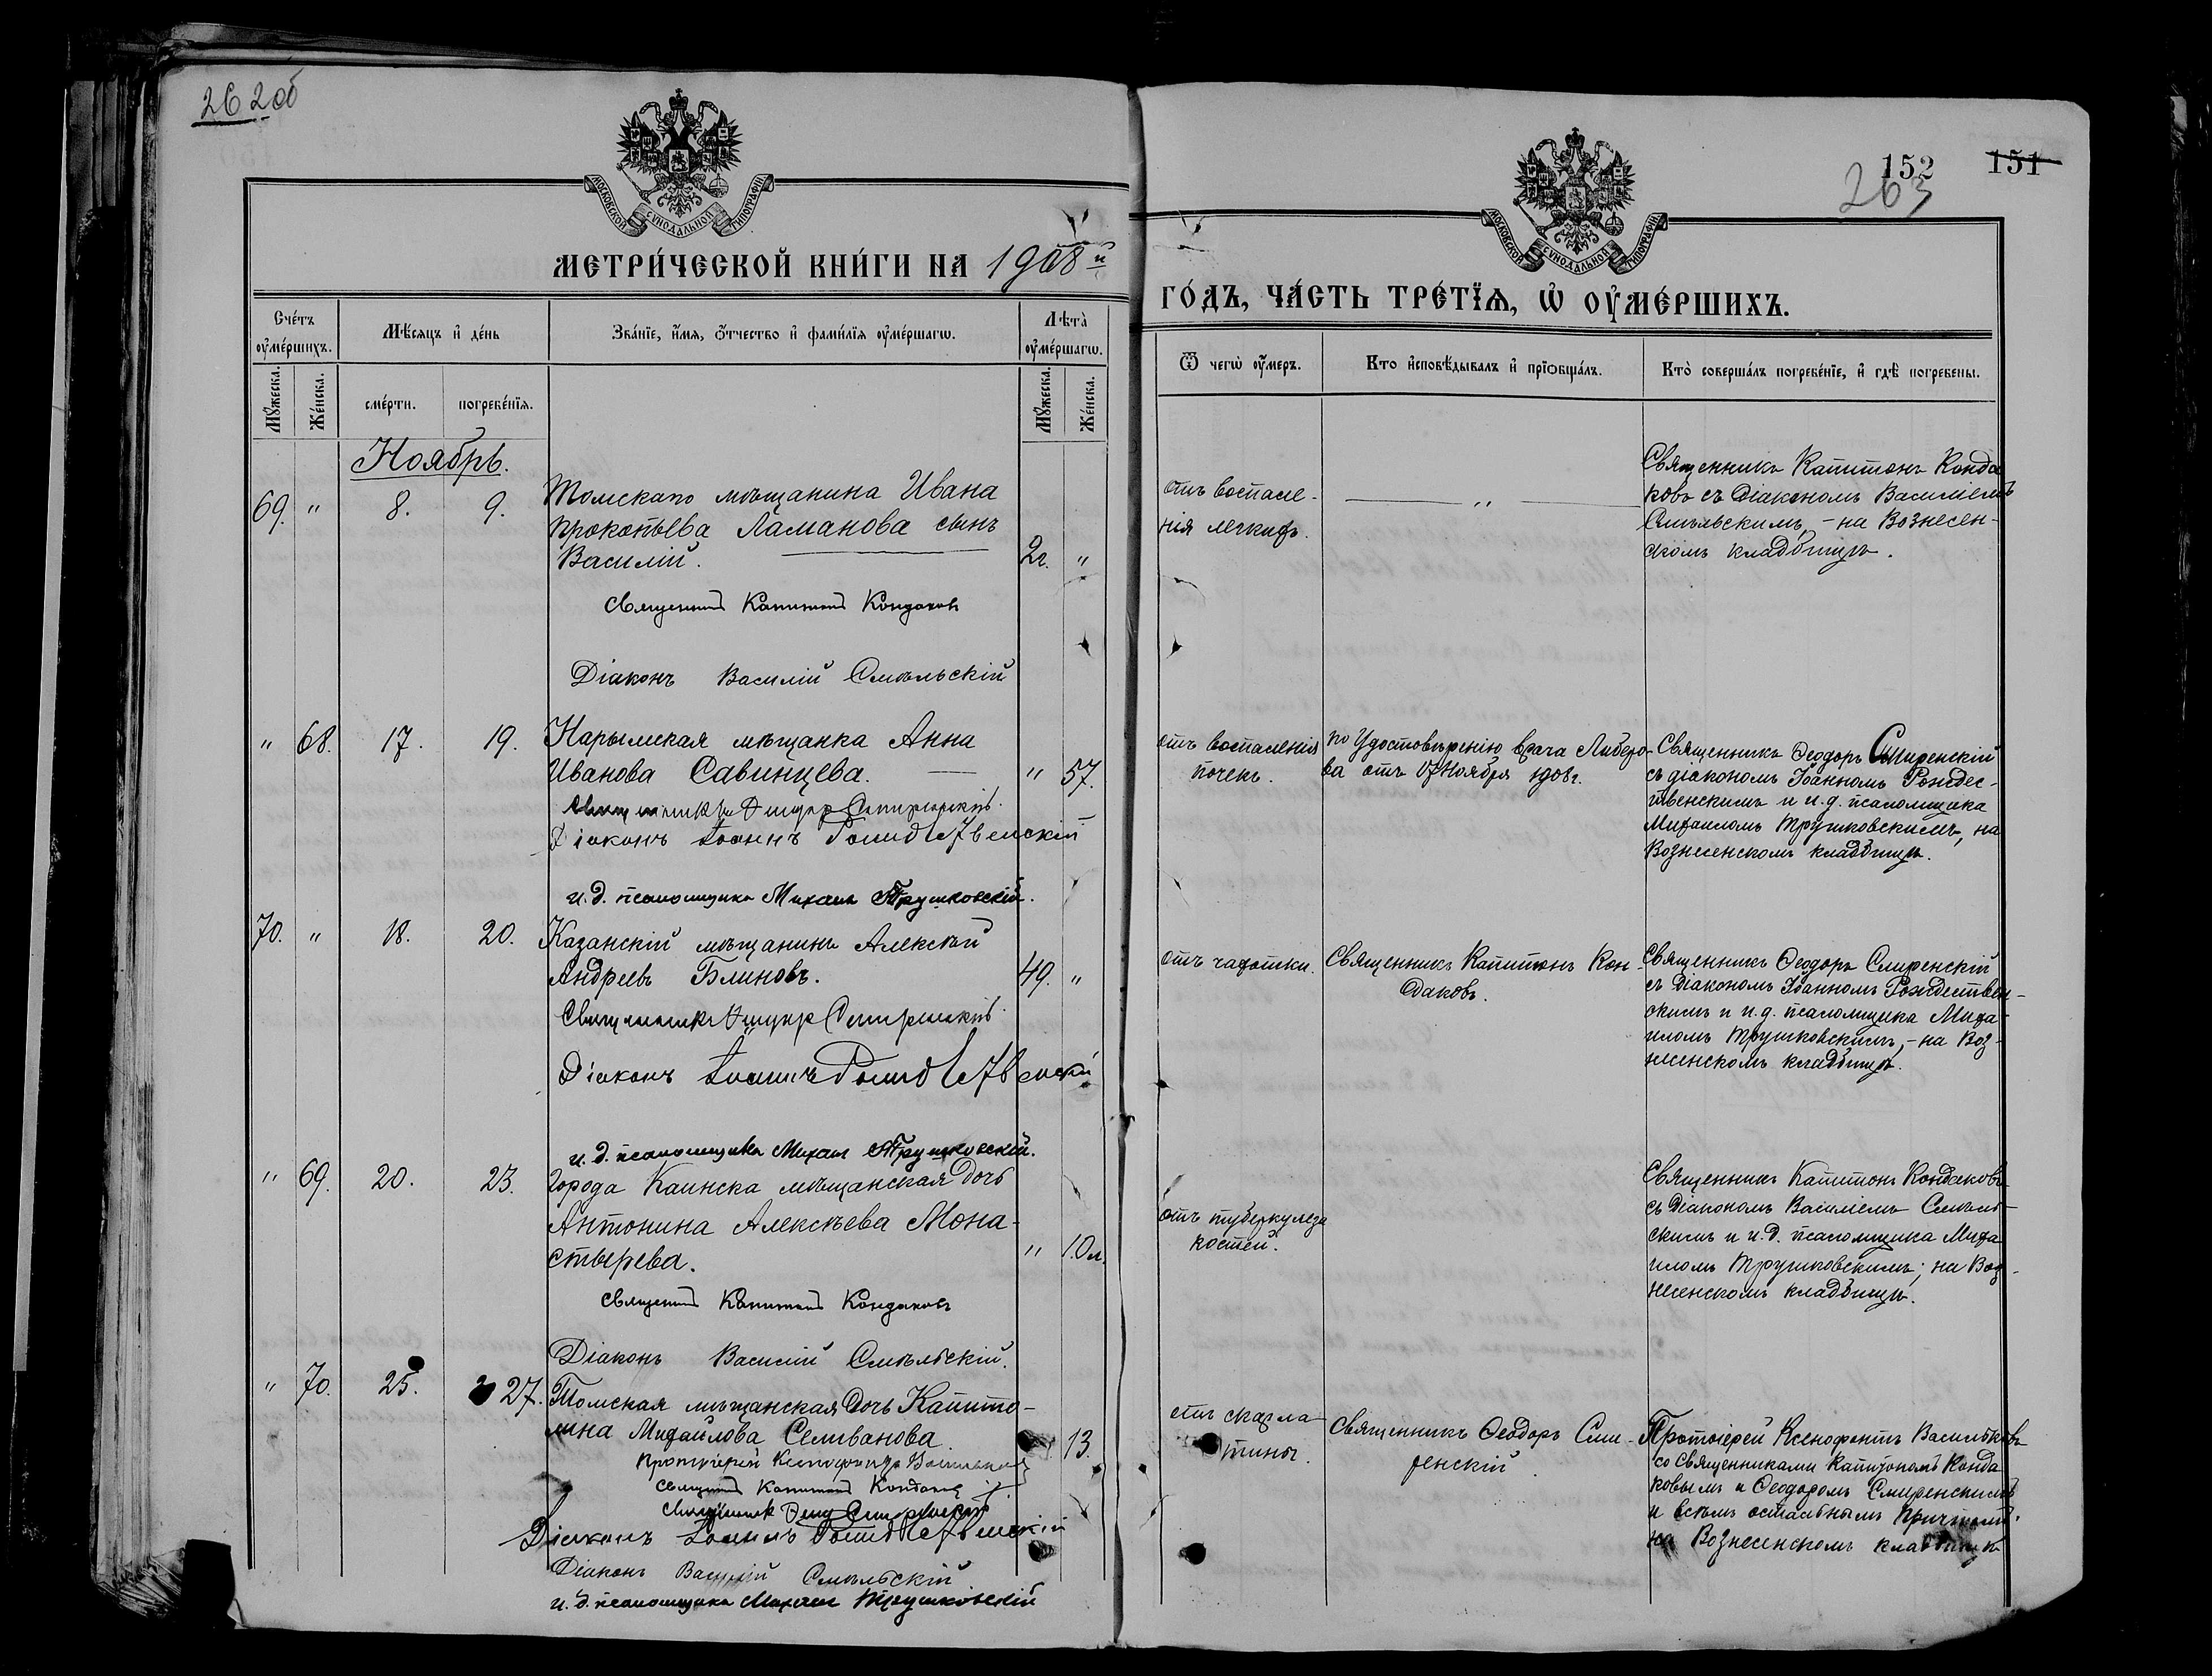 262об
МОСКОВСКОЙ СѴНОДАЛЬНОЙ ТИПОГРАФІИ
МЕТРИ́ЧЕСКОЙ КНИ́ГИ НА 1908й
Сче́тъ ᲂу҆ме́ршихъ.
Мѣ́сяцъ и҆ де́нь
Зва́нїе, и҆́мя, ѻ҆́тчество и҆ фами́лїя ᲂу҆ме́ршагѡ.
Лѣта̀ ᲂу҆ме́ршагѡ.
Мꙋ́жеска.
Же́нска.
сме́рти.
погребе́нїя.
Мꙋ́жеска.
Же́нска.
Ноябрь.
69. " 8. 9. Томскаго мѣщанина Ивана
Прокопьева Ламанова сынъ
Василій. 2г. "
Священникъ Капитонъ Кондаковъ
Діаконъ Василій Смѣльскій
" 68. 17. 19. Нарымская мѣщанка Анна
Иванова Савинцева. " 57.
Священникъ Ѳеодоръ Смиренскій.
Діаконъ Іоаннъ Рождественскій
и. д. псаломщика Михаилъ Трушковскій.
70. " 18. 20. Казанскій мѣщанинъ Алексѣй
Андреевъ Блиновъ. 49. "
Священникъ Ѳеодоръ Смиренскій.
Діаконъ Іоаннъ Рождественскій
и. д. псаломщика Михаилъ Трушковскій.
" 69. 20. 23. Города Каинска мѣщанская дочь
Антонина Алексѣева Мона-
стырева. " 10л.
Священникъ Капитонъ Кондаковъ
Діаконъ Василій Смѣльскій.
" 70. 25. 27. Томская мѣщанская дочь Капито-
лина Михайлова Селиванова. 13.
Протоіерей Ксенофонтъ Васильковъ
Священникъ Капитонъ Кондаковъ
Священникъ Ѳеод. Смиренскій
Діаконъ Іоаннъ Рождественскій
Діаконъ Василій Смѣльскій
и. д. псаломщика Михаилъ Трушковскій
МОСКОВСКОЙ СѴНОДАЛЬНОЙ ТИПОГРАФІИ
152 151
263
ГО́ДЪ, ЧА́СТЬ ТРЕ́ТЇѦ, Ѡ҆ ОУ҆МЕ́РШИХЪ.
Ѿ чегѡ̀ ᲂу҆́меръ.
Кто и҆сповѣ́дывалъ и҆ прїѡбща́лъ.
Кто̀ соверша́лъ погребе́нїе, и҆ гдѣ̀ погребены.
отъ воспале-
нія легкихъ.
"
Священникъ Капитонъ Конда
ковъ съ Діакономъ Василіемъ
Смѣльскимъ, - на Вознесен-
скомъ кладбищѣ.
отъ воспаленія
почекъ.
по Удостовѣренію врача Либеро-
ва отъ 17 Ноября 1908г.
Священникъ Ѳеодоръ Смиренскій
съ діакономъ Іоанномъ Рождес-
твенскимъ и и. д. псаломщика
Михаиломъ Трушковскимъ, на
Вознесенскомъ кладбищѣ.
отъ чахотки.
Священникъ Капитонъ Кон-
даковъ.
Священникъ Ѳеодоръ Смиренскій
съ Діакономъ Іоанномъ Рождествен-
скимъ и и. д. псаломщика Миха-
иломъ Трушковскимъ, - на Воз-
несенскомъ кладбищѣ.
отъ туберкулеза
костей.
Священникъ Капитонъ Кондаковъ
съ Діакономъ Василіемъ Смѣль-
скимъ и и. д. псаломщика Миха
иломъ Трушковскимъ; на Воз-
несенскомъ кладбищѣ.
отъ скарла-
тины.
Священникъ Ѳеодоръ Сми-
ренскій.
Протоіерей Ксенофонтъ Васильковъ
со Священниками Капитономъ Конда
ковымъ и Ѳеодоромъ Смиренскимъ
и всѣмъ остальнымъ причтомъ.
на Вознесенскомъ кладбищѣ